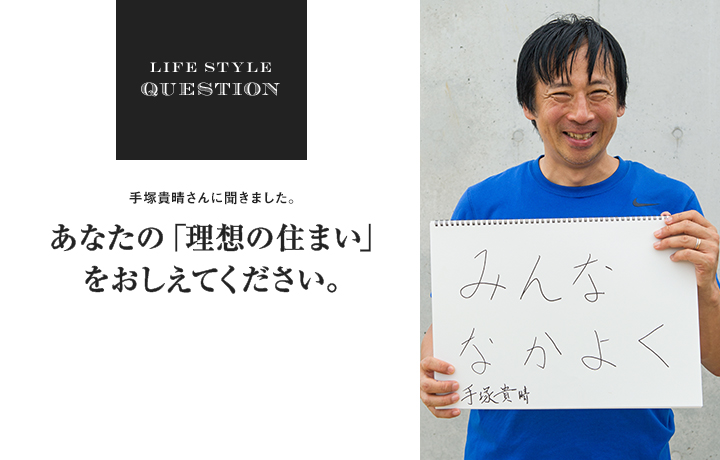 LIFE STYLE
QUESTION
手塚貴晴さんに聞きました。
あなたの「理想の住まい」
をおしえてください。
みんな
なかよく
手塚貴晴